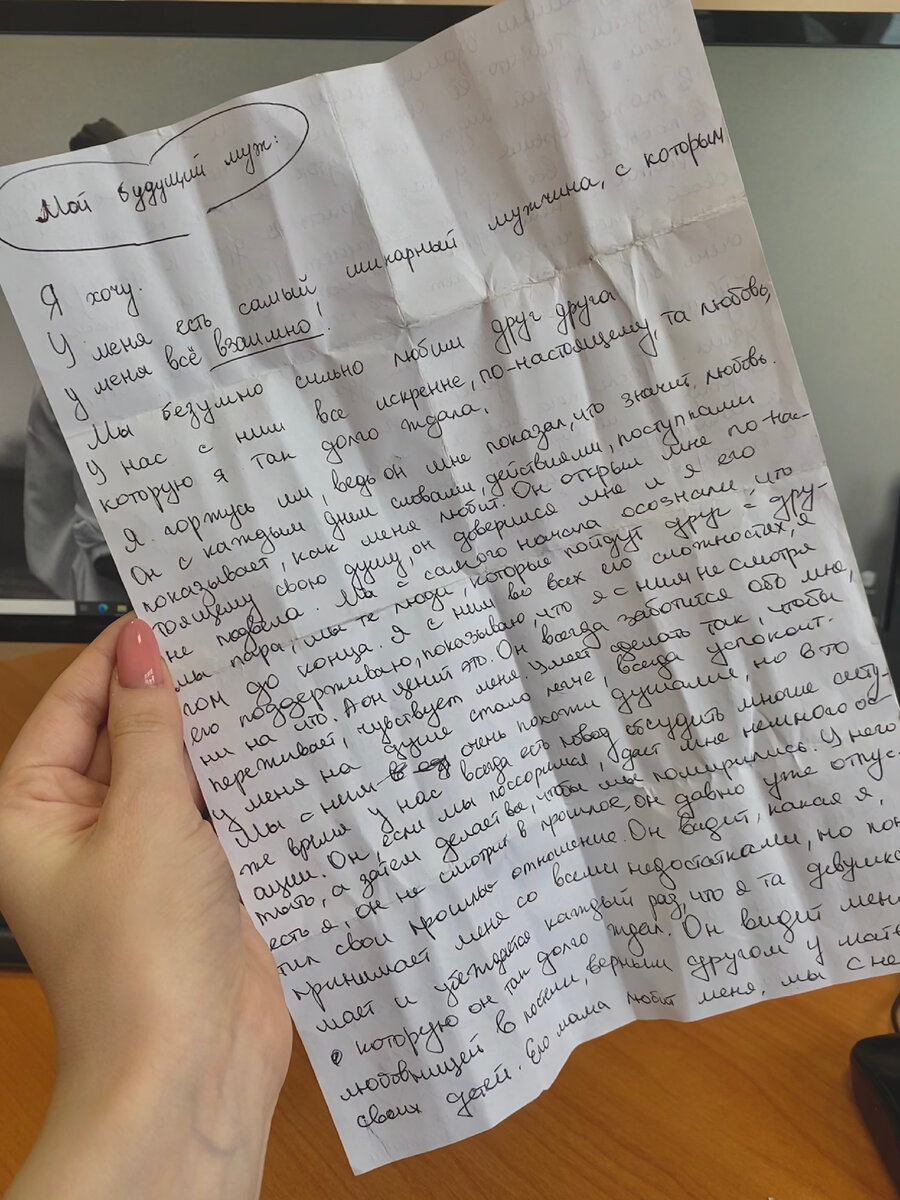 Мой будущий муж:
Я хочу.
У меня есть самый шикарный мужчина, с которым
у меня всё взаимно!
Мы безумно сильно любим друг друга
У нас с ним все искренне, по-настоящему, та любовь,
которую я так долго ждала.
Я горжусь им, ведь он мне показал, что значит любовь.
Он с каждым днем словами, действиями, поступками
показывает, как меня любит. Он открыл мне по-нас-
тоящему свою душу, он доверился мне и я его
не подвела. Мы с самого начала осознали, что
мы пара, мы те люди, которые пойдут друг с дру-
гом до конца. Я с ним во всех его сложностях, я
его поддерживаю, показываю, что я с ним не смотря
ни на что. А он ценит это. Он всегда заботится обо мне,
переживает, чувствует меня. Умеет сделать так, чтобы
у меня на душе стало легче, всегда успокоит.
Мы с ним очень похожи душами, но в то
же время у нас всегда есть повод обсудить многие ситу-
ации. Он, если мы поссоримся, даст мне немного ос-
тыть, а затем делает все, чтобы мы помирились. У него
есть я, он не смотрит в прошлое, он давно уже отпус-
тил свои прошлые отношение. Он видит, какая я,
принимает меня со всеми недостатками, но
мает и убеждается каждый раз, что я та девушка
которую он так долго ждал. Он видит
любовницей в постели, верным другом у
своих детей. Его мама любит меня, мы с